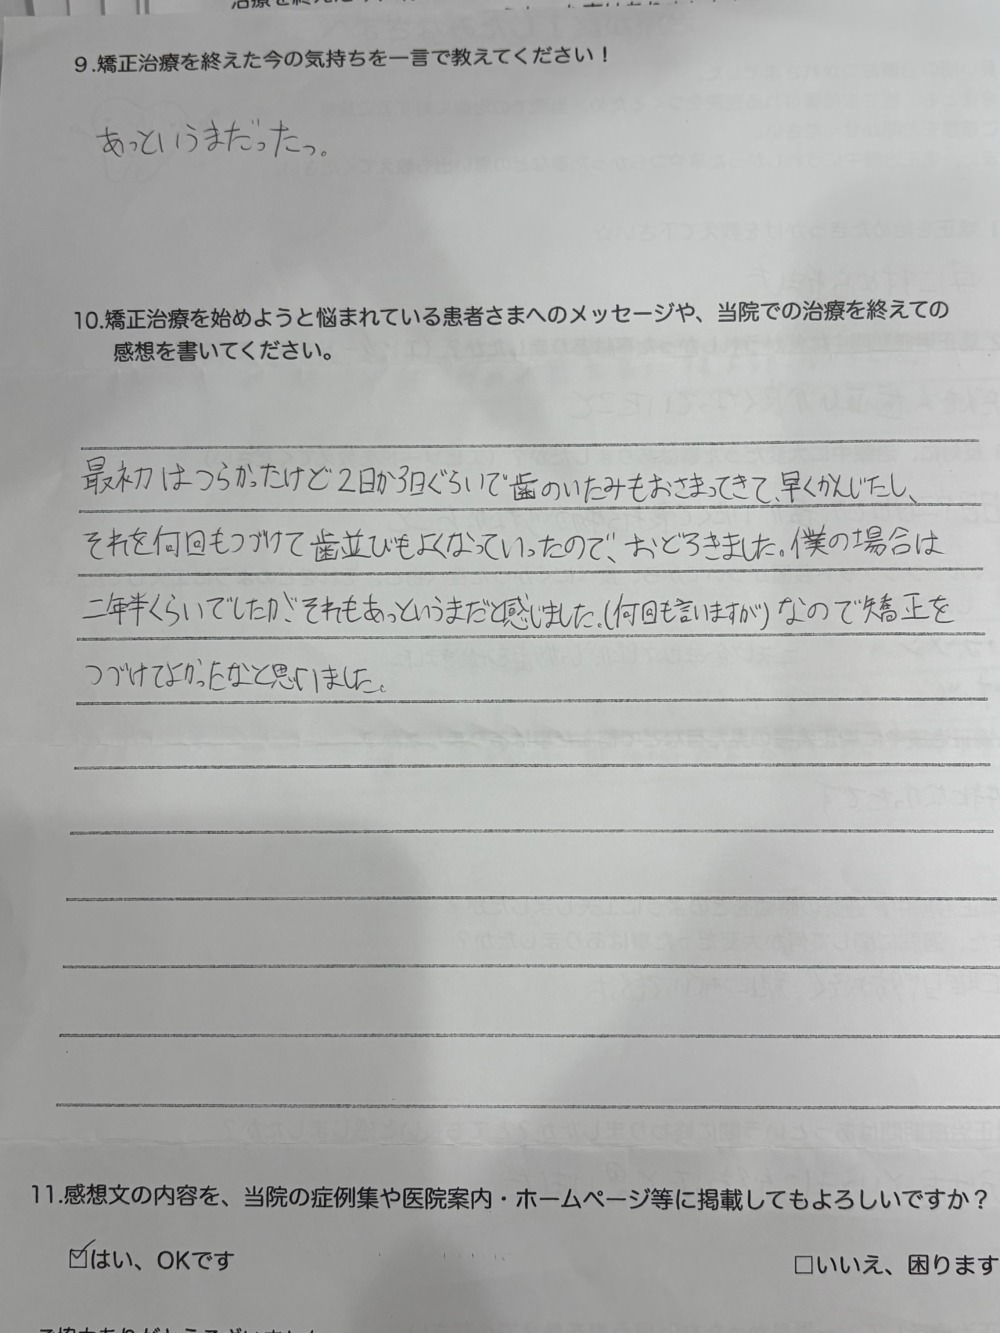 9.矯正治療を終えた今の気持ちを一言で教えてください！
あっというまだったっ。
10.矯正治療を始めようと悩まれている患者さまへのメッセージや、当院での治療を終えての
感想を書いてください。
最初はつらかったけど2日か3日ぐらいで歯のいたみもおさまってきて、早くかんじたし、
それを何回もつづけて歯並びもよくなっていったので、おどろきました。僕の場合は
二年半くらいでしたが、それもあっというまだと感じました。(何回も言いますが)なので矯正を
つづけてよかったなと思いました。
11.感想文の内容を、当院の症例集や医院案内・ホームページ等に掲載してもよろしいですか？
☑はい、OKです □いいえ、困ります